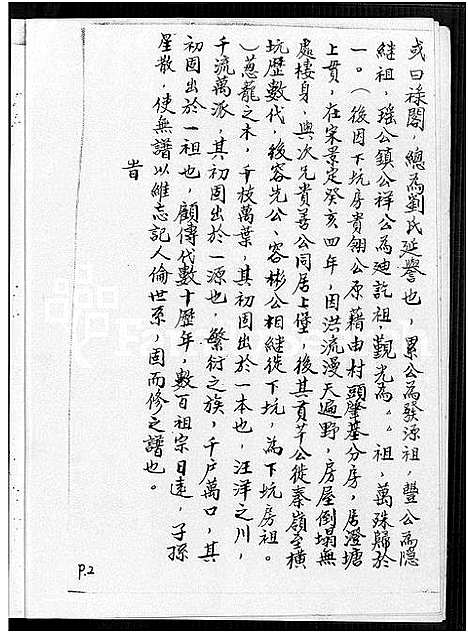 或曰祿閣，總為劉氏延譽也，累公為發源祖，豐公為隱
繼祖，瑤公鎮公祥公為廸託祖，觀光為〃祖，萬殊歸於
一。（後因下坑房貴翎公原藉由村頭肇基分房，居澄塘
上貫，在宋景定癸亥四年，因洪流漫天遍野，房屋倒塌無
處棲身，與次兄貴善公同居上堡，後其貢公徙秦嶺至橫
坑歷數代，後容先公、容彬公相繼徙下坑，為下坑房祖。
）蔥蘢之木，千枝萬葉，其初固出於一本也，汪洋之川，
千流萬派，其初固出於一源也，繁衍之族，千戶萬口，其
初固出於一祖也，顧傳代數十歷年，數百祖宗日遠，子孫
星散，使無譜以維志記人倫世系，固而修之譜也。
旹
P.2